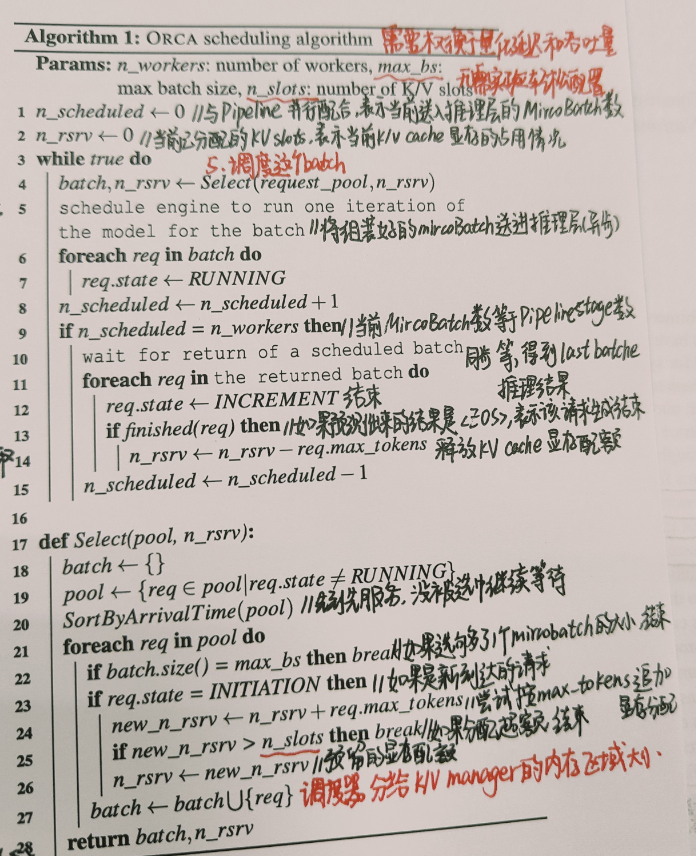 Algorithm 1: ORCA scheduling algorithm 需要权衡于量化延迟和吞吐量
Params: n_workers: number of workers, max_bs:
max batch size, n_slots: number of K/V slots
1 n_scheduled ← 0 //与Pipeline并行配合,表示当前送入推理层的MircoBatch数
2 n_rsrv ← 0 //当前已分配的KV slots,表示当前K/V cache显存的占用情况
3 while true do 5.调度这个batch
4 batch, n_rsrv ← Select(request_pool, n_rsrv)
5 schedule engine to run one iteration of
the model for the batch //将组装好的mircoBatch送进推理层(异步)
6 foreach req in batch do
7 req.state ← RUNNING
8 n_scheduled ← n_scheduled + 1
9 if n_scheduled = n_workers then //当前MircoBatch数等于PipelineStage数
10 wait for return of a scheduled batch 同步等,得到last batche
11 foreach req in the returned batch do 推理结果
12 req.state ← INCREMENT 结束
13 if finished(req) then //如果预测出来的结果是<EOS>,表示该请求生成结束
14 n_rsrv ← n_rsrv − req.max_tokens 释放KV cache显存配额
15 n_scheduled ← n_scheduled − 1
16
17 def Select(pool, n_rsrv):
18 batch ← {}
19 pool ← {req ∈ pool|req.state ≠ RUNNING}
20 SortByArrivalTime(pool) //先到先服务,没被选中继续等待
21 foreach req in pool do
22 if batch.size() = max_bs then break //如果选向多了1个mircobatch的大小 结束
23 if req.state = INITIATION then //如果是新到达的请求
24 new_n_rsrv ← n_rsrv + req.max_tokens //尝试按max-tokens追加
显存分配
25 if new_n_rsrv > n_slots then break //如果分配超 结束
26 n_rsrv ← new_n_rsrv //预留的显存配额
27 batch ← batch ⋃{req} 调度器 分给K/V manager的内存区域大小.
28 return batch, n_rsrv